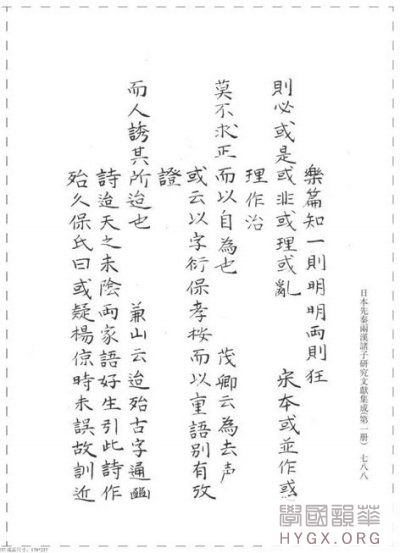 日本先秦兩漢諸子研究文獻集成(第一册) 七八八
樂篇知一則明明兩則狂
則必或是或非或理或亂 宋本或並作或
理作治
莫不求正而以自為也 茂卿云為去声
或云以字衍保孝桉而以重語別有攷
證
而人誘其所迨也 兼山云迨殆古字通豳
詩迨天之未陰雨家語好生引此詩作
殆久保氏曰或疑楊倞時未誤故訓近
學國韻華
HYGX.ORG